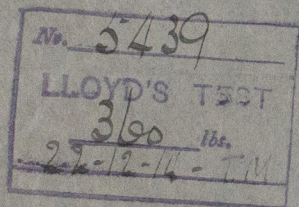 No. 5439
LLOYD'S TEST
360 lbs.
22-12-14 - T.M